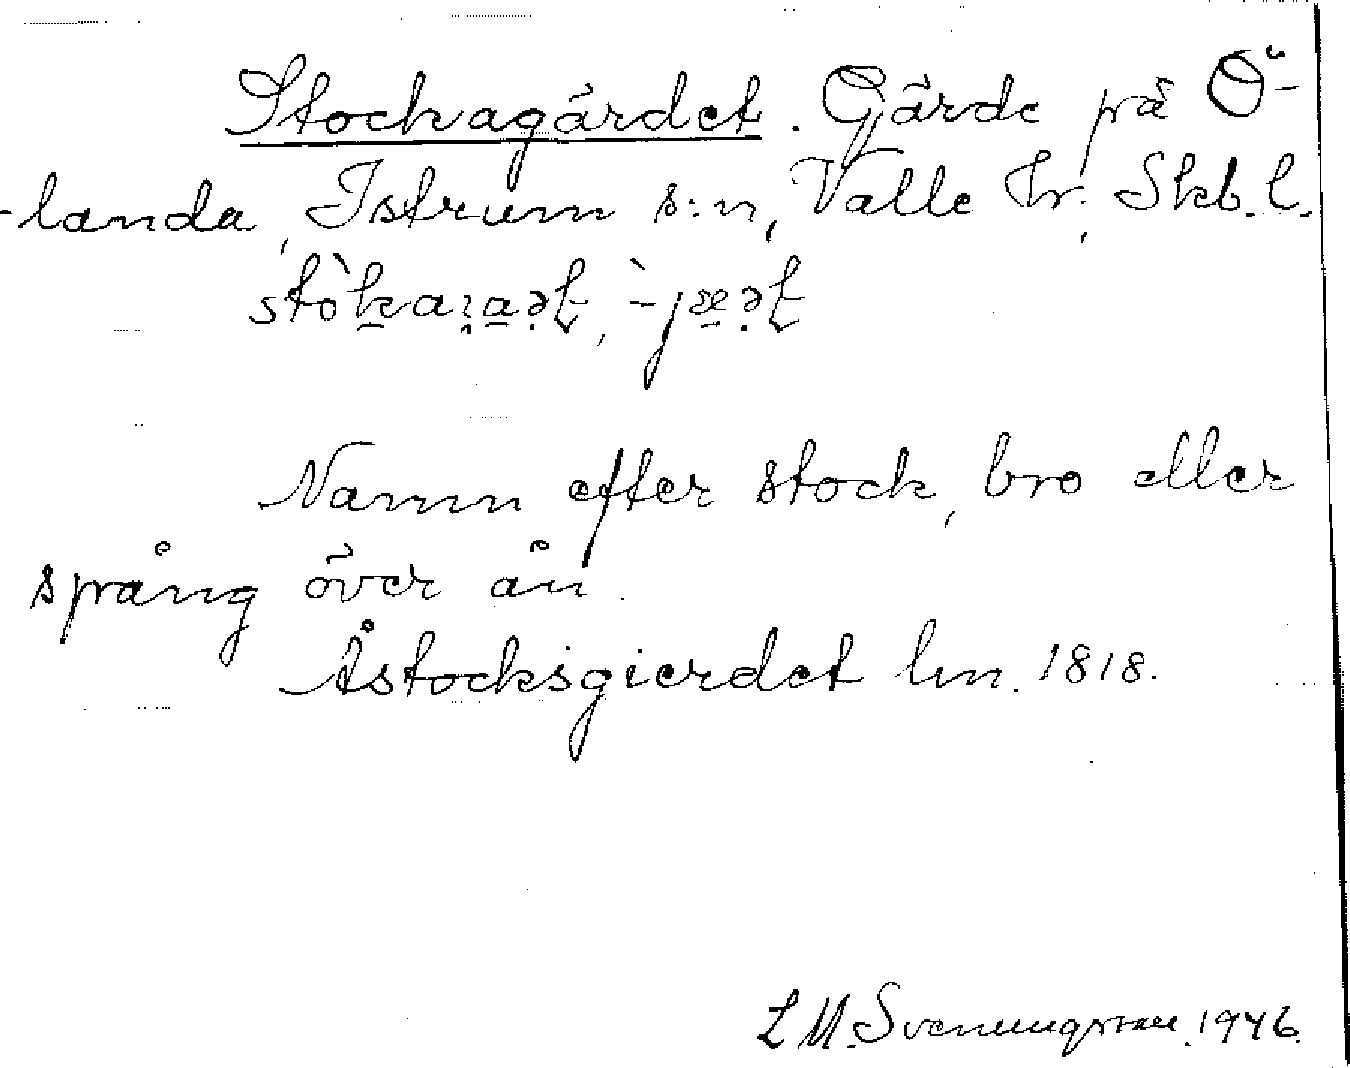 Stockagärdet. Gärde på Ö-
-landa, Istrum s:n, Valle hr, Skb. l.
Namn efter stock, bro eller
spång över ån.
Åstocksgierdet lm. 1818.
L M. Svenungsson. 1946.